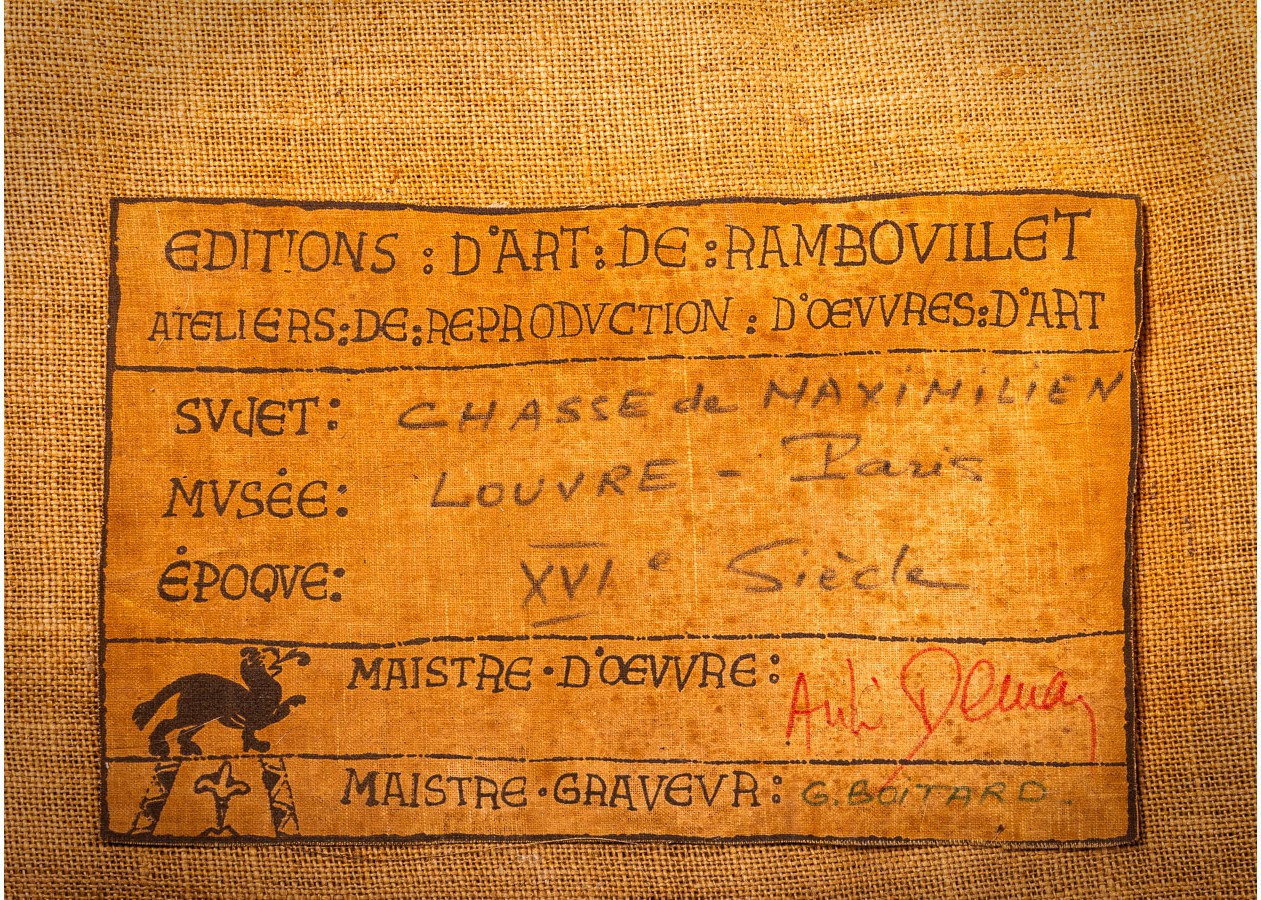 EDITIONS : D'ART : DE : RAMBOVILLET
ATELIERS : DE : REPRODVCTION : D'ŒVVRES : D'ART
SVJET : CHASSE de MAXIMILIEN
MVSÉE : LOUVRE - Paris
ÉPOQVE : XVIe Siècle
MAISTRE · D'ŒVVRE :
MAISTRE · GRAVEVR : G. BOITARD.